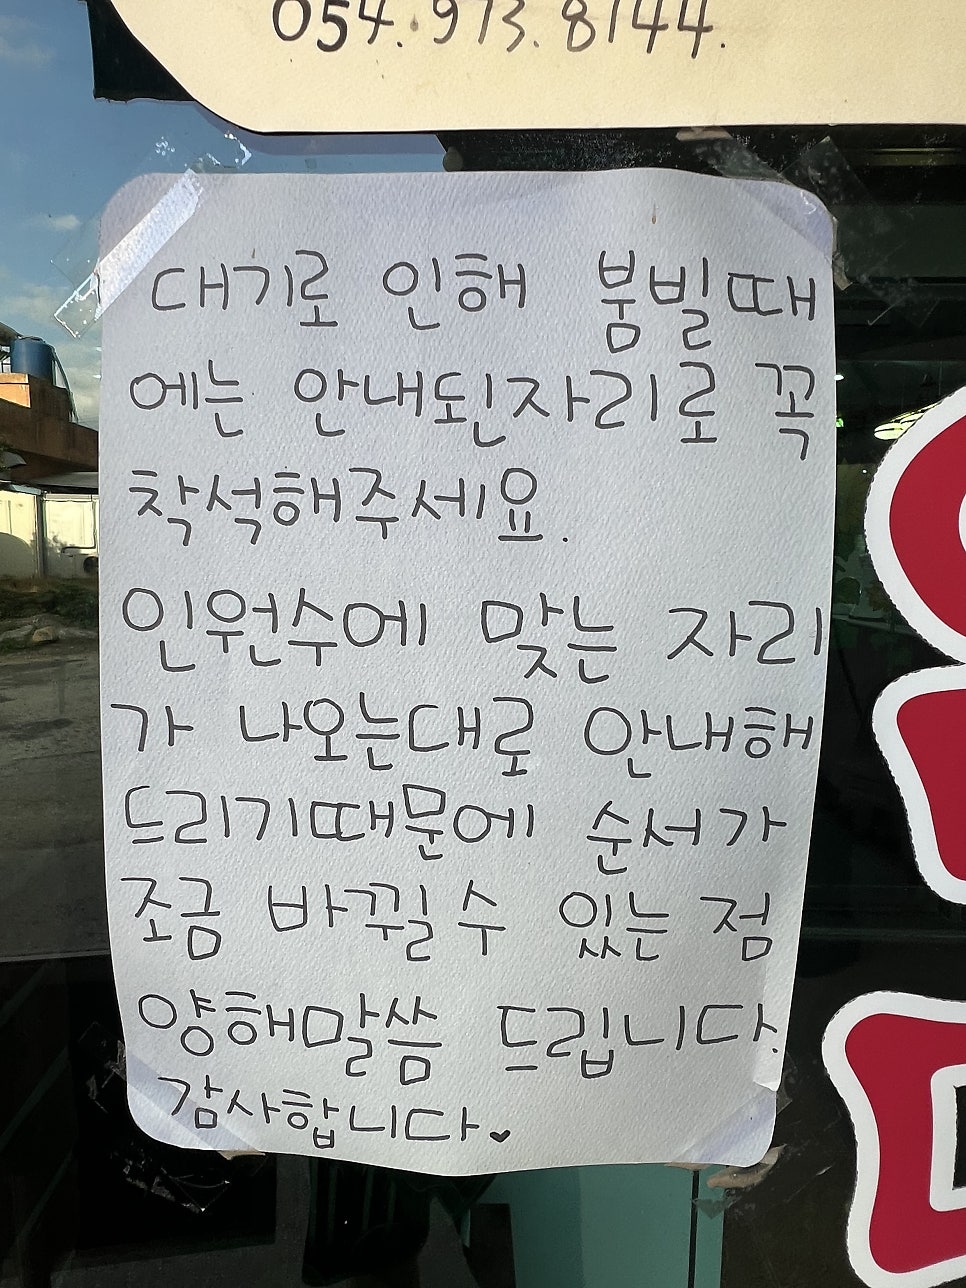 054.973.8144.
대기로 인해 붐빌때
에는 안내된자리로 꼭
착석해주세요.
인원수에 맞는 자리
가 나오는대로 안내해
드리기때문에 순서가
조금 바뀔 수 있는 점
양해말씀 드립니다.
감사합니다♥